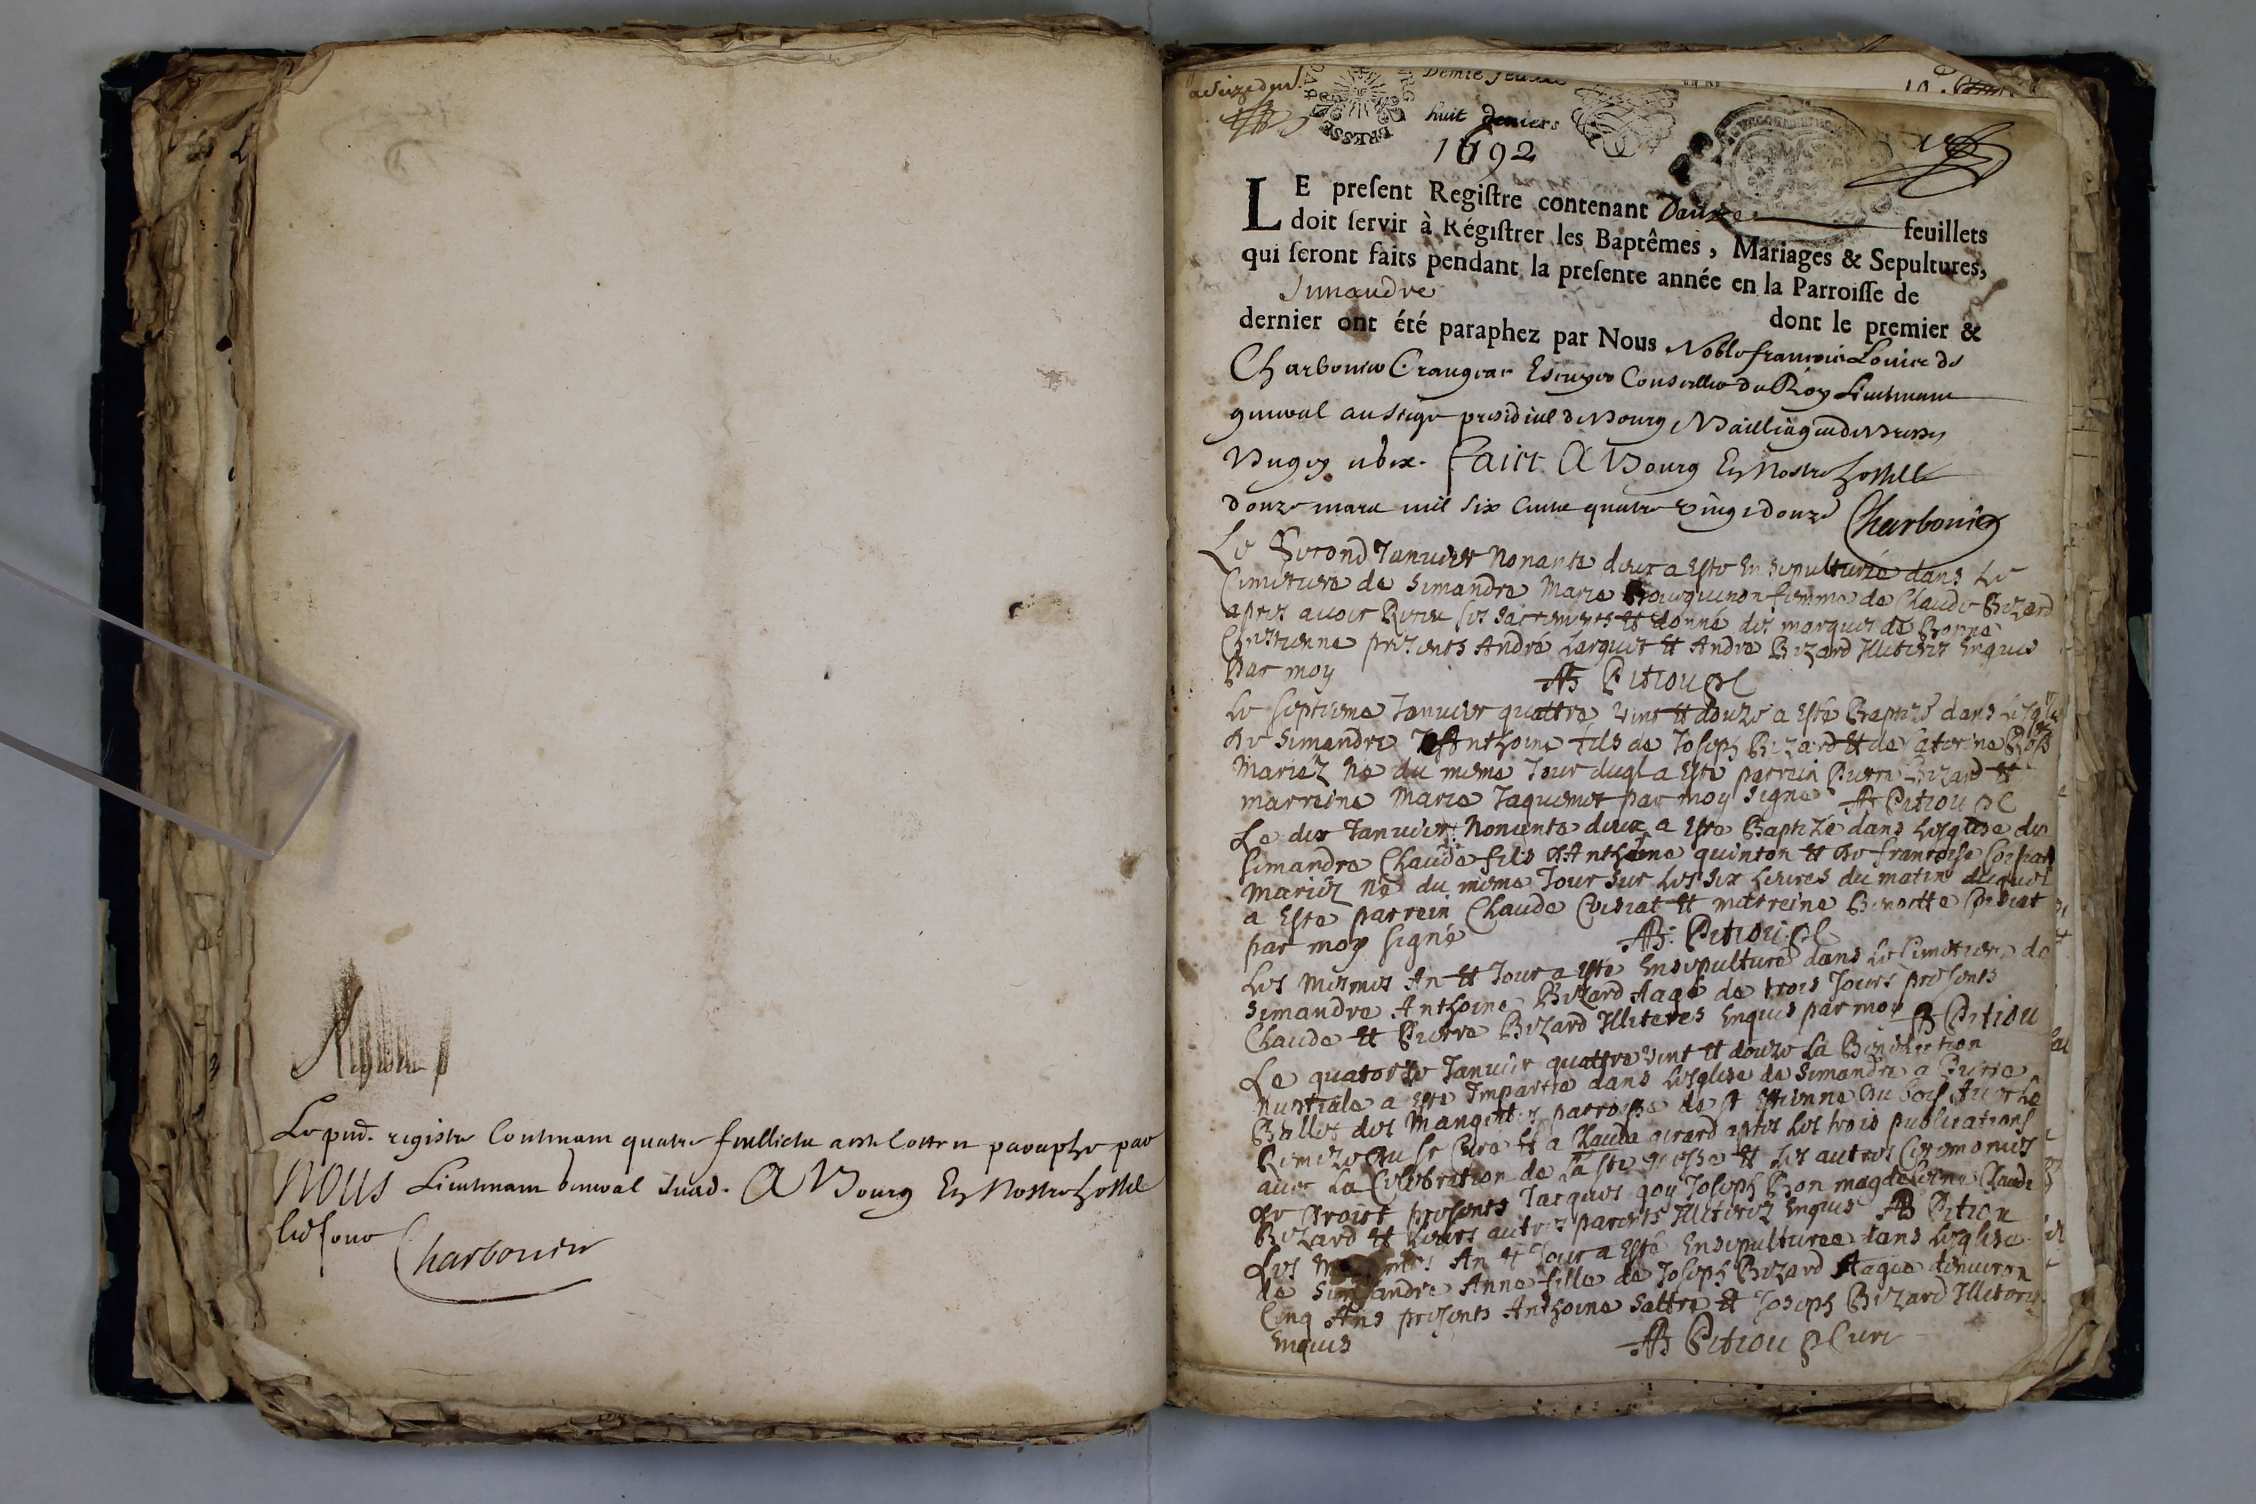 Registre
Le pnt. registre Contenant quatre feulliets a este Cotté et paraphé par
Nous Lieutenant general susd. A Bourg En Nostre hostel
Charbonier
Demie feuille
huit deniers
1692
LE present Registre contenant douze feuillets
doit servir à Régistrer les Baptêmes, Mariages & Sepultures,
qui seront faits pendant la presente année en la Parroisse de
Simandre dont le premier &
dernier ont été paraphez par Nous Noble francois Louis de
Charbonier Crangeac Escuyer Conseiller du Roy Lieutenant
general au siege presidial de Bourg Bailliage de Bresse
Bugey Faict A Bourg En Nostre hostel le
douze mars mil six Cents quatre vingt douze Charbonier
Le Second Janvier Nonante deux a Este En sepulturée dans Le
Cimetiere de Simandre Marie femme de Claude Bizard
apres avoir Receu ses sacrements et donné des marques de Bonne
Chrestienne presents André Larquet et Andre Bizard Illiteres Enquis
Par moy AB Pitiou C
Le septieme Janvier quattre vint et douze a Esté Baptizé dans Lesglise
de Simandre Anthoine fils de Joseph Bizard et de Caterine
Mariez Né du meme Jour duql a Esté parrein Pierre Bizard et
marreine Marie Jaquemet par moy signé AB Pitiou C
Le dix Janvier Nonente deux a Este Baptizé dans Lesglise de
Simandre Claude fils d'Anthoine quinton et de francoise
Mariez né du meme Jour sur Les six heures du matin duquel
a Este parrein Claude et marreine Benoitte
par moy signé AB Pitiou C
Les Mesmes An et Jour a Esté Ensepulturé dans Le Cimetiere de
Simandre Anthoine Bizard Aagé de trois Jours presents
Claude et Pierre Bizard Illiteres Enquis par moy AB Pitiou
Le quatorze Janvier quattre vint et douze La Benediction
Nuptiale a Este Impartie dans Lesglise de Simandre a Pierre
Bullet des Mangettes parroisse de st Estienne du bois Avec Le
Remize du sr Curé et a Claudia girard apres Les trois publications
avec La Celebration de La ste Messe et les autres Ceremonies
de droict presents Jacques goy Joseph Bon Claude
Bizard et Leurs autres parents Illiterez Enquis AB Pitiou
Les An et Jour a Esté Ensepulturee dans Leglise
de Simandre Anne fille de Joseph Bizard Aagée denviron
Cinq Ans presents Anthoine Saltre et Joseph Bizard Illiterez
Enquis AB Pitiou Curé